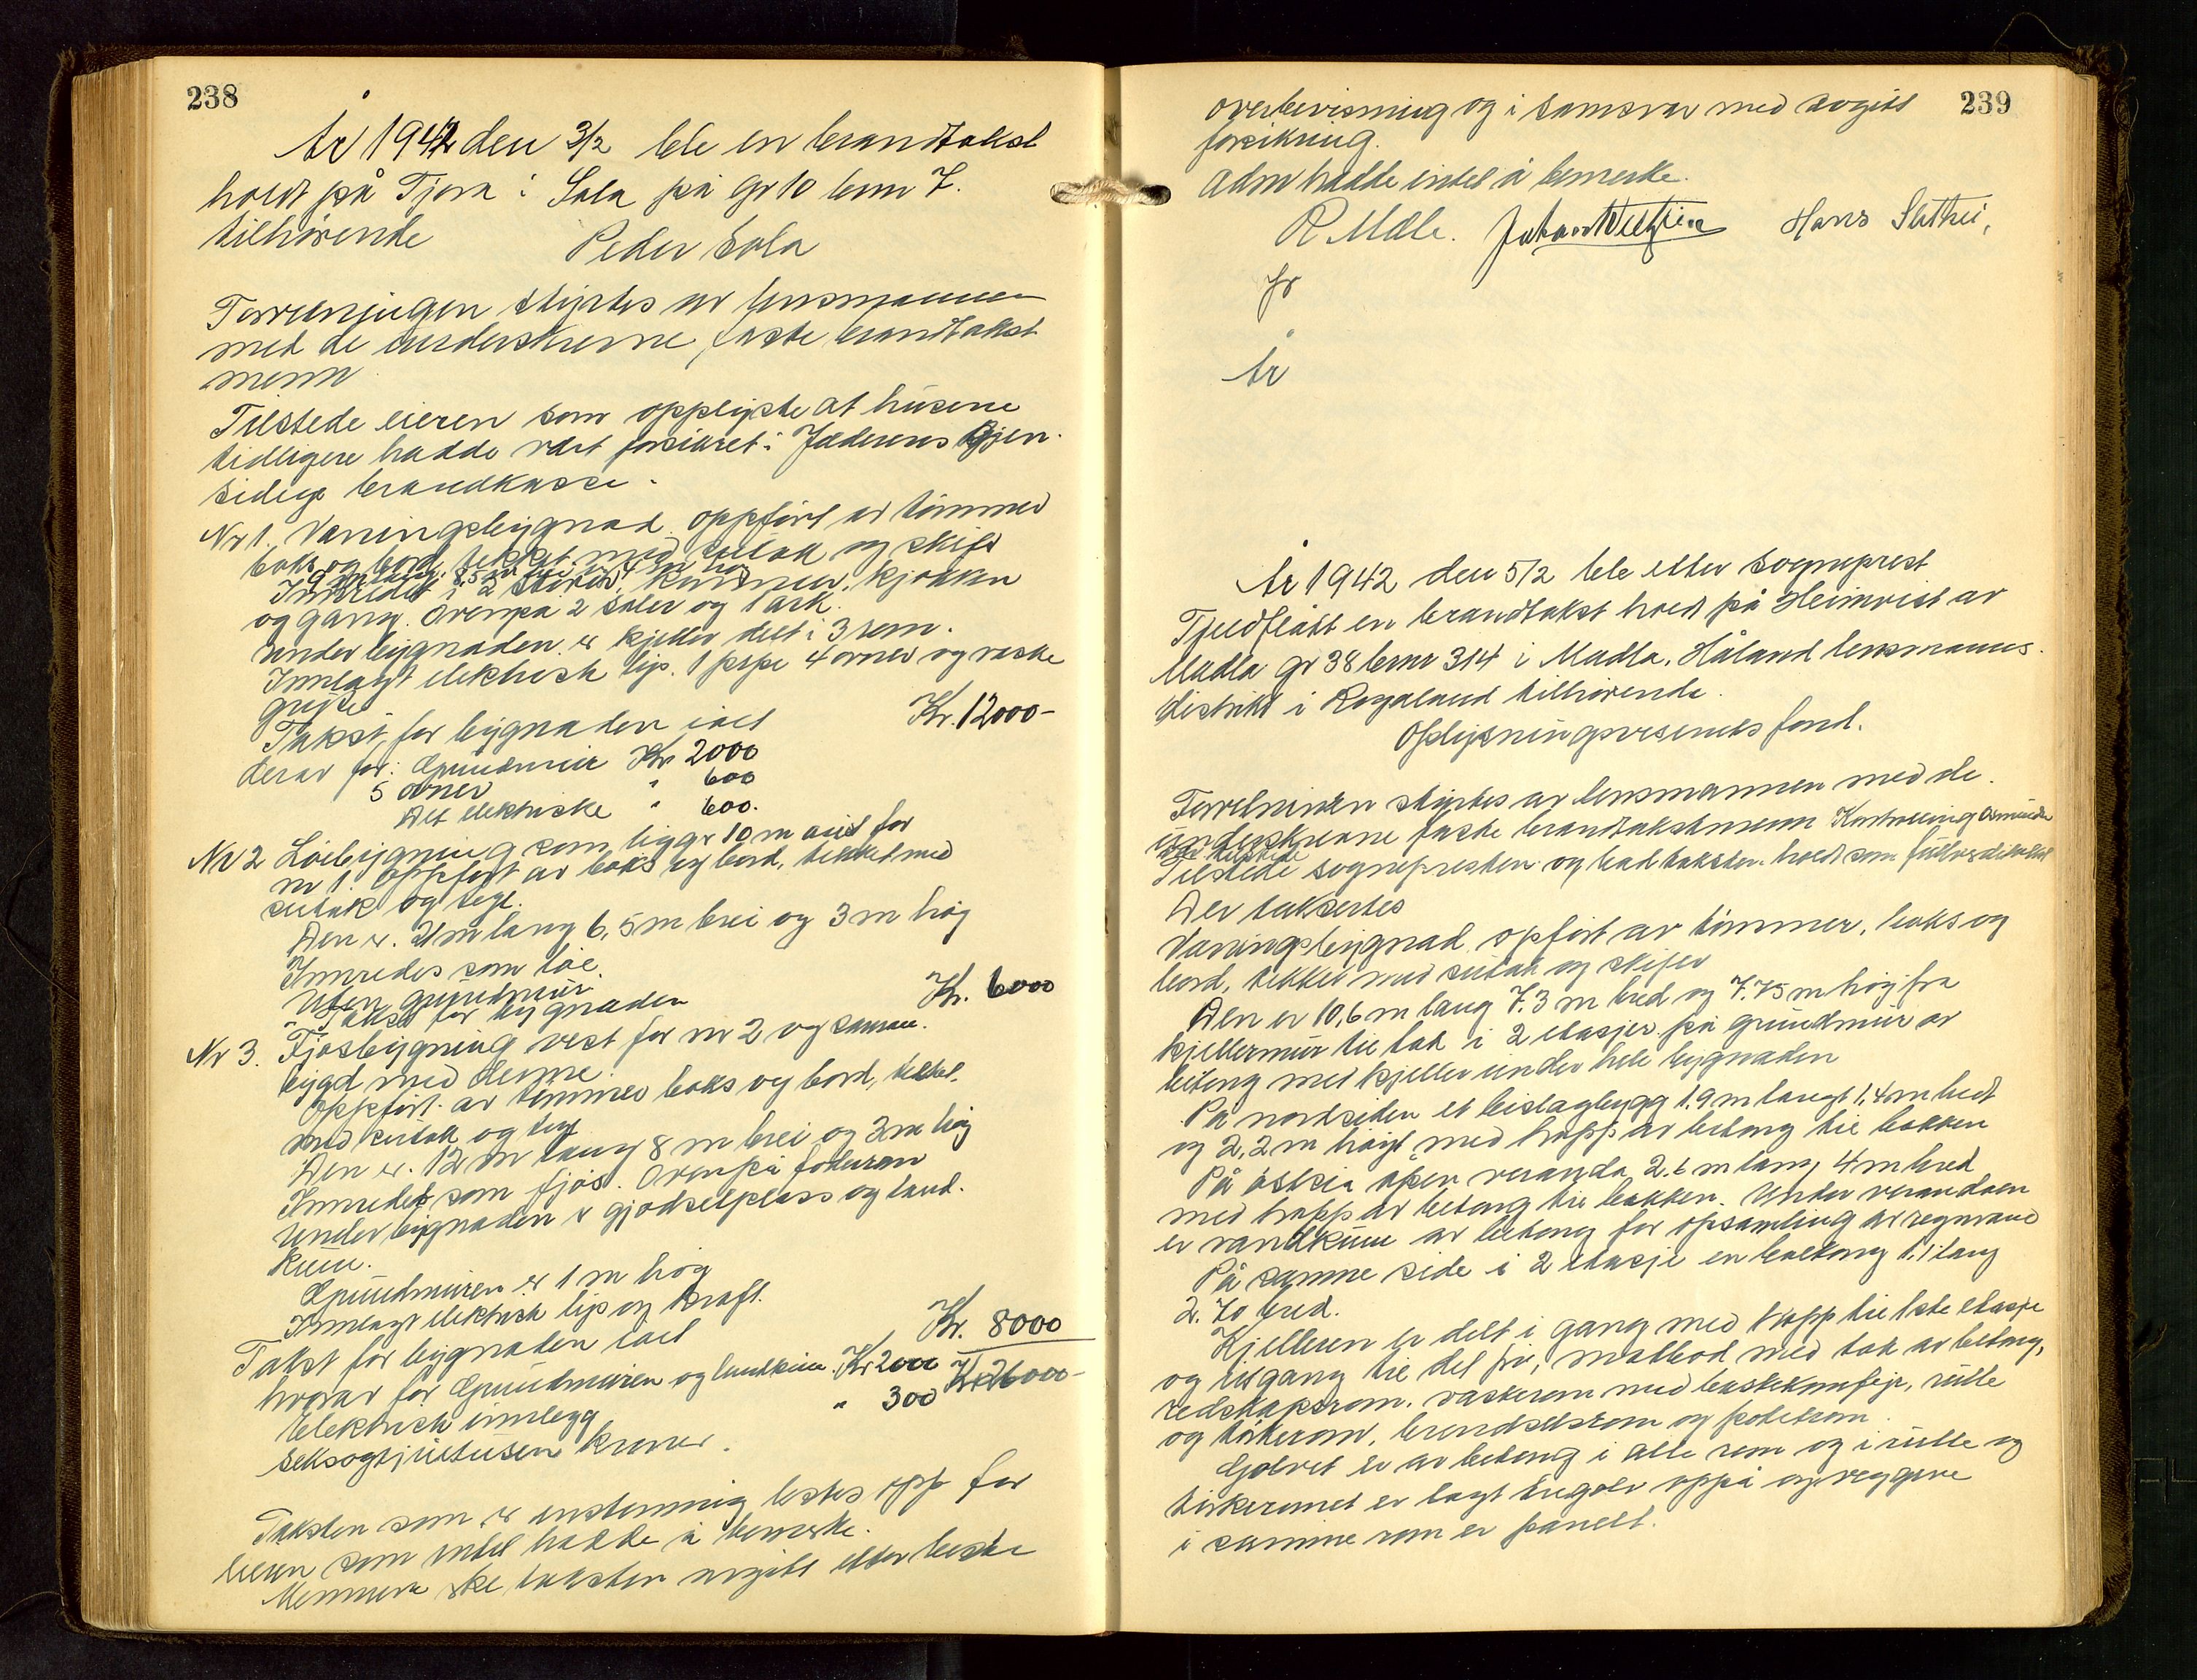 238
År 1942 den 3/2 ble en brandtakst
holdt på Tjora i Sola på gr 10 bnr 7.
tilhørende
Peder Sola
Forretningen styrtes av lensmannen
med de underskrevne faste brandtakst
menn
Tilstede eieren som opplyste at husene
tidligere hadde vært forsikret i Jæderens Gjen-
sidige brandkasse.
Nr 1. Vaningsbygnad oppført av tømmer
boks og bord, tekket med sutak og skifer
9 m lang. 8,5 m brei
Innredet i 2 stover, kammer, kjøkken
og gang. Ovenpå 2 saler og 1 ark.
Under bygnaden er kjeller delt i 3 rom.
Innlagt elektrisk lys. 1 pipe 4 ovner og vaske
gryte
Takst for bygnaden ialt Kr. 12000-
derav for: Grundmur Kr 2000
5 ovner " 600
Det elektriske " 600.
Nr 2 Løebygning som ligger 10 m aust for
nr 1. Oppført av boks og bord, tekket med
sutak og tegl.
Den er. 21 m lang 6,5 m brei og 3 m høg
Innredes som løe.
Uten grundmur
Takst for bygnaden Kr. 6000
Nr 3. Fjøsbygning vest for nr 2 og samen-
bygd med denne.
Oppført av tømmer boks og bord, tekket
med sutak og tegl
Den er. 12 m lang 8 m brei og 3 m høg
Innredet som fjøs. Ovenpå foderrom
Under bygnaden er gjødselplass og land-
kum.
Grundmuren er 1 m høg
Innlagt elektrisk lys og kraft.
Takst for bygnaden ialt Kr. 8000
hvorav for Grundmuren og landkum Kr 2000 Kr 26000-
Elektrisk innlegg " 300
Seksogtjuetusen kroner.
Taksten som er enstemmig lestes opp for
eieren som intet hadde å bemerke.
Mennene ske taksten avgitt etter beste
239
overbevisning og i samsvar med avgitt
forsikring.
Adm hadde intet å bemerke.
R. Mæle. Hans Slethei,
År
År 1942 den 5/2 ble etter sogneprest
Tjeldflåt en brandtakst holdt på Heimvist av
Madla gr 38 bnr 314 i Madla, Håland lensmanns-
distrikt i Rogaland tilhørende.
Oplysningsvesenets fond.
Forretningen styrtes av lensmannen med de
underskrevne faste brandtakstmenn
Tilstede sognepresten og bad taksten holdt som
Der taksertes
Vaningsbygnad opført av tømmer, boks og
bord, tekket med sutak og skifer
Den er 10,6 m lang 7.3 m bred og 7.75 m høg fra
kjellermur til tak i 2 etasjer på grundmur av
betong med kjeller under hele bygnaden
På nordsiden et bislagbygg 1.9 m langt 1.4 m bredt
og 2,2 m høgt med trapp av betong til bakken
På østsia åpen veranda 2.6 m lang, 4 m bred
med trapp av betong til bakken. Under verandaen
er vandkum av betong for opsamling av regnvand
På samme side i 2 etasje en balkong 1.1 lang
2.70 bred.
Kjelleren er delt i gang med trapp til 1ste etasje
og utgang til det fri, matbod med tak av betong,
redskapsrom, vaskerom med baskekomfyr, rulle
og tørkerom, brendselsrom og potetrom.
Golvet er av betong i alle rom og i rulle og
tørkeromet er lagt tregolv oppå og veggene
i samme rom er panelt.